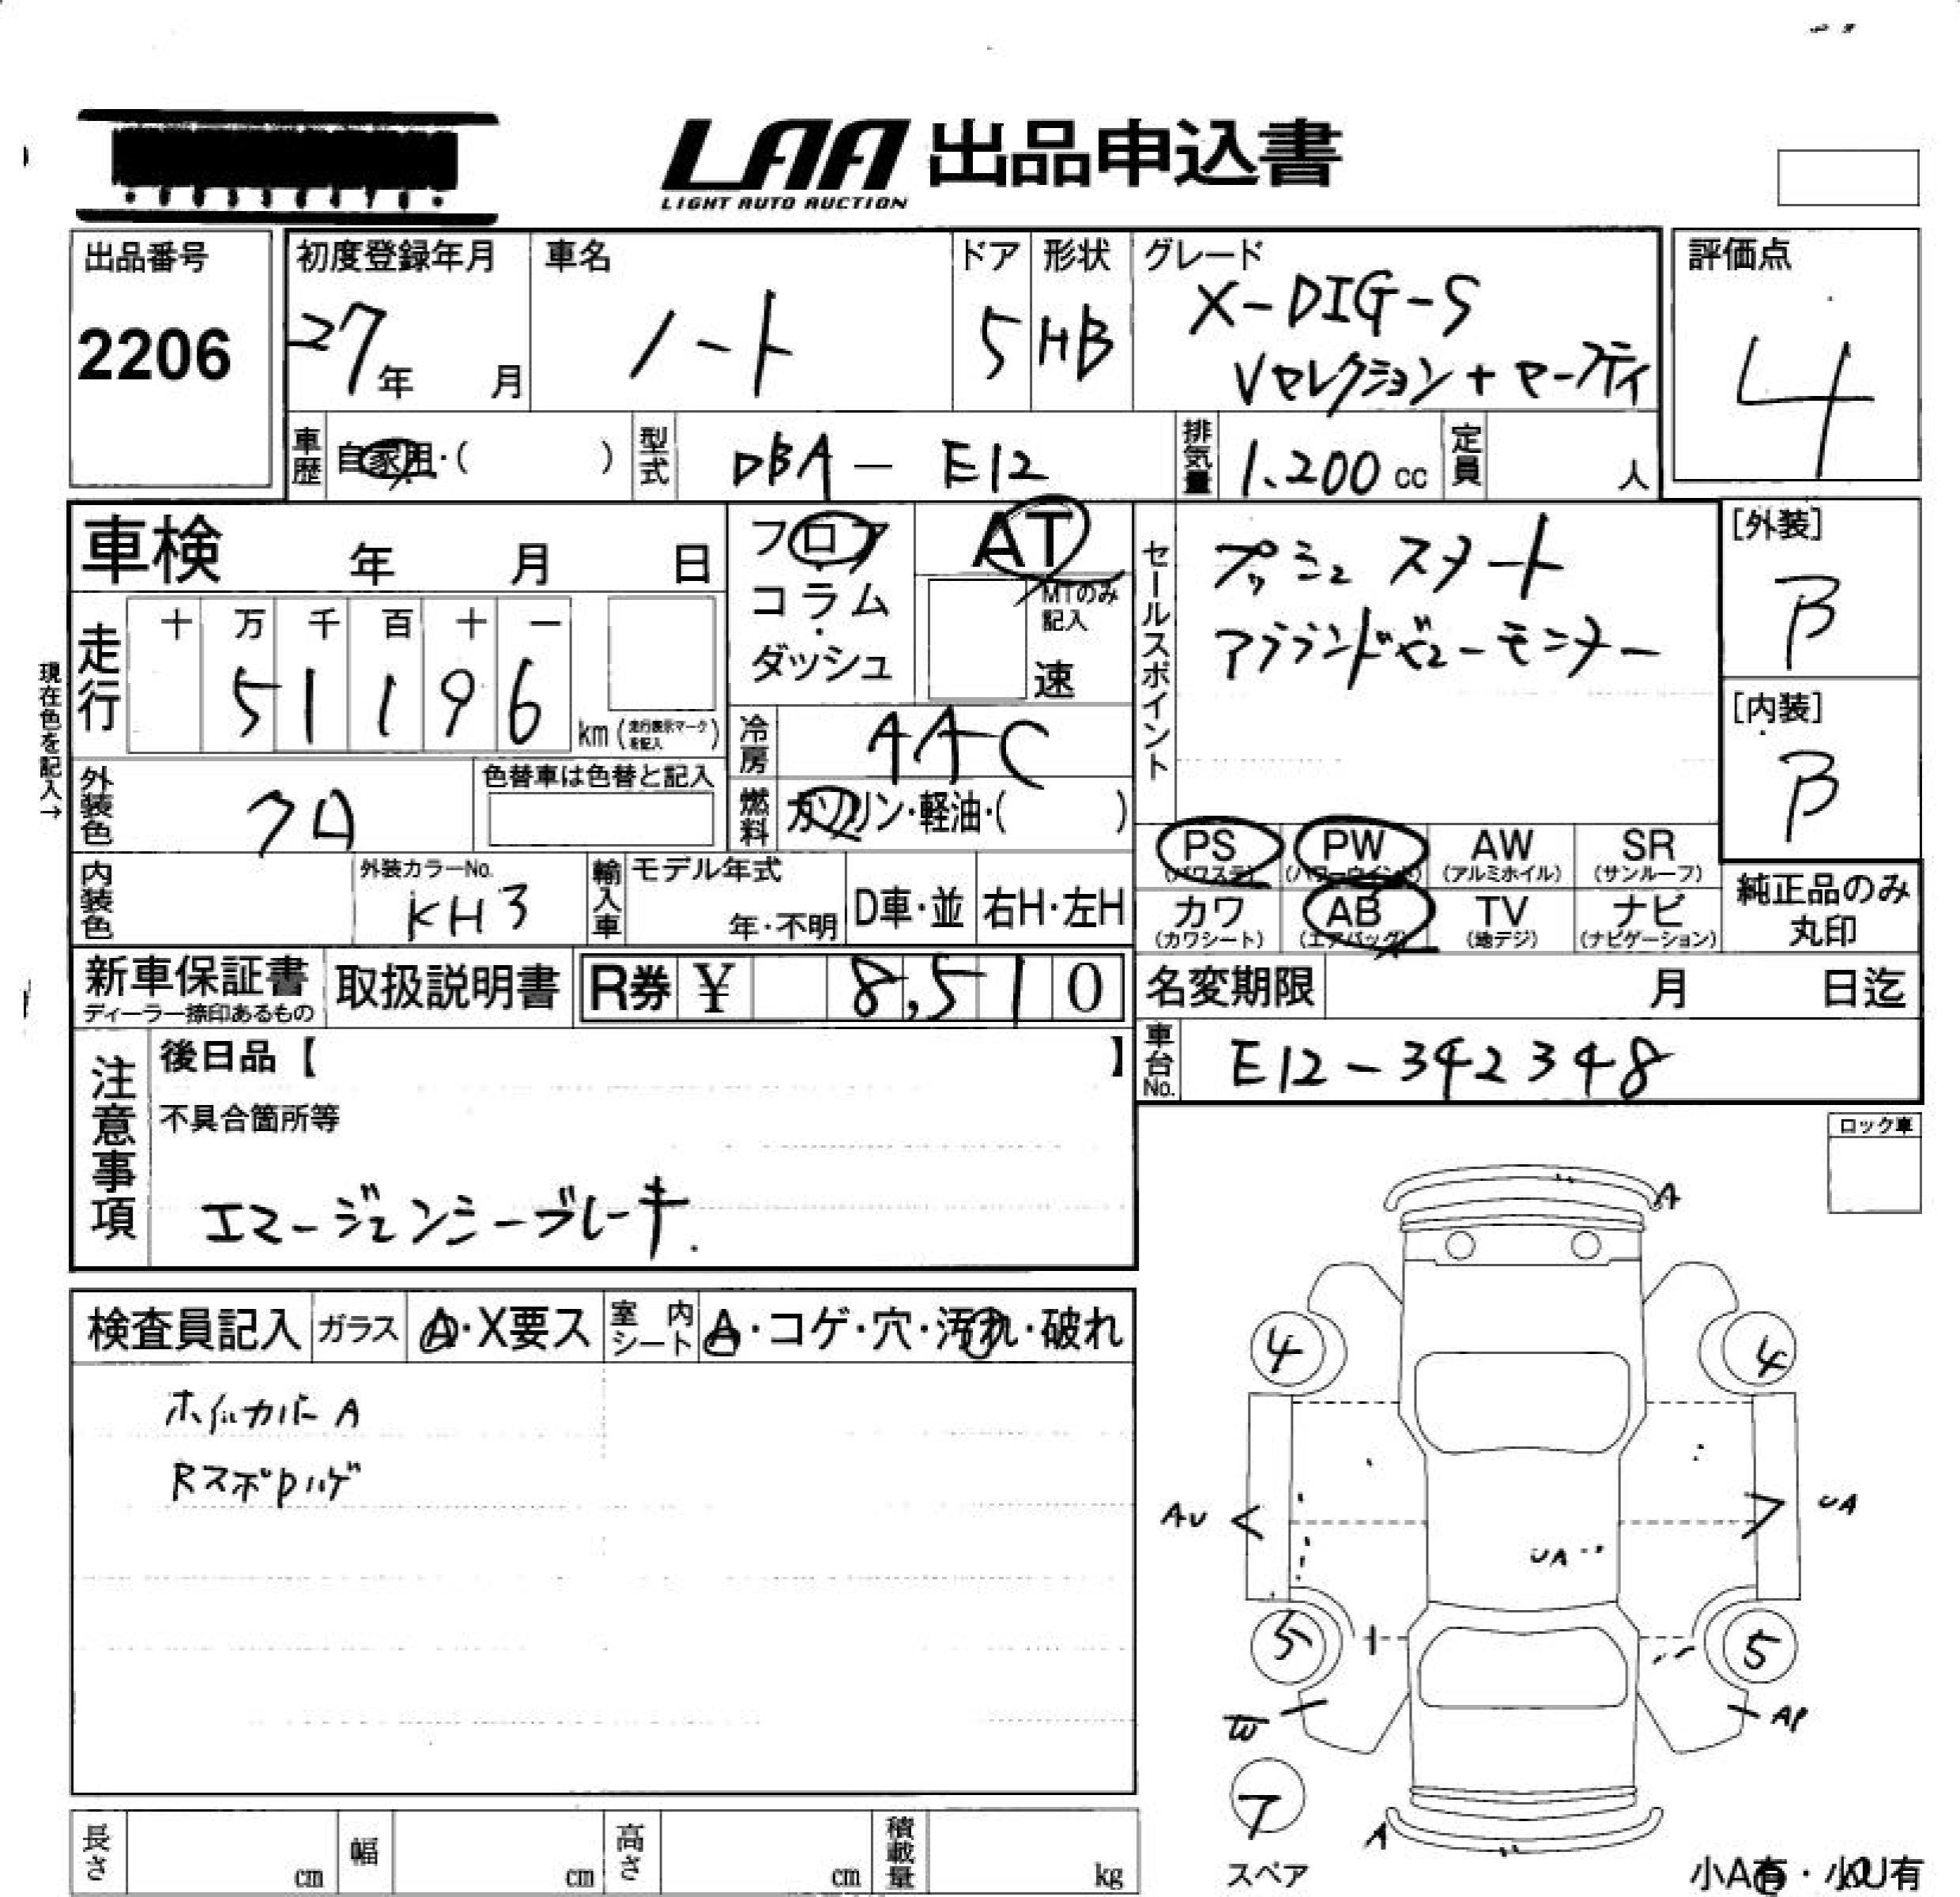 LAA 出品申込書
LIGHT AUTO AUCTION
出品番号
2206
初度登録年月
27年 月
車名
ノート
ドア
5
形状
HB
グレード
X-DIG-S
Vセレクション+セーフティ
評価点
4
車歴 自家用・( )
型式 DBA - E12
排気量 1.200 cc
定員 人
車検 年 月 日
フロア
コラム
・
ダッシュ
AT
MTのみ
記入
速
セールスポイント
プッシュ スタート
アラウンドビューモニター
[外装]
B
[内装]
B
現在色を記入→
走行
十 万 千 百 十 一
5 1 1 9 6
km (走行表示マークを記入)
冷房 AAC
外装色 クロ
色替車は色替と記入
燃料 ガソリン・軽油・( )
PS (パワステ) PW (パワーウインド) AW (アルミホイル) SR (サンルーフ)
カワ (カワシート) AB (エアバッグ) TV (地デジ) ナビ (ナビゲーション)
純正品のみ
丸印
内装色
外装カラーNo.
KH3
輸入車
モデル年式
年・不明
D車・並
右H・左H
新車保証書
ディーラー捺印あるもの
取扱説明書
R券 ¥ 8,510
名変期限 月 日迄
車台No. E12-342348
注意事項
後日品【 】
不具合箇所等
エマージェンシーブレーキ.
ロック車
検査員記入
ガラス
A・X要ス
室内シート
A・コゲ・穴・汚れ・破れ
ホイルカバーA
RスポPハゲ
A
4 4
AU UA
UA
5 5
W AP
T
スペア
A
小A有・小U有
長さ cm
幅 cm
高さ cm
積載量 kg